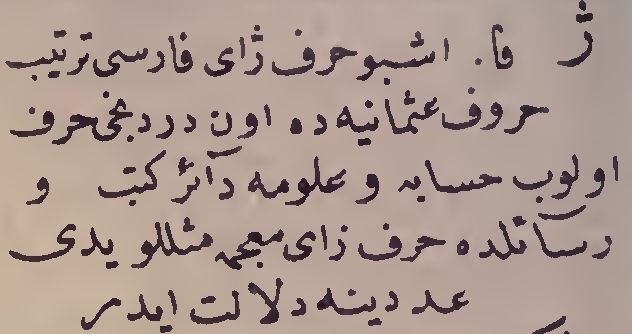 ژ فا. اشبو حرف ژای فارسی ترتیب
حروف عثمانیه ده اون دردنجی حرف
اولوب حسابه و علومه دآئر کتب و
رسآئلده حرف زای معجمه مثللو یدی
عددینه دلالت ایدر